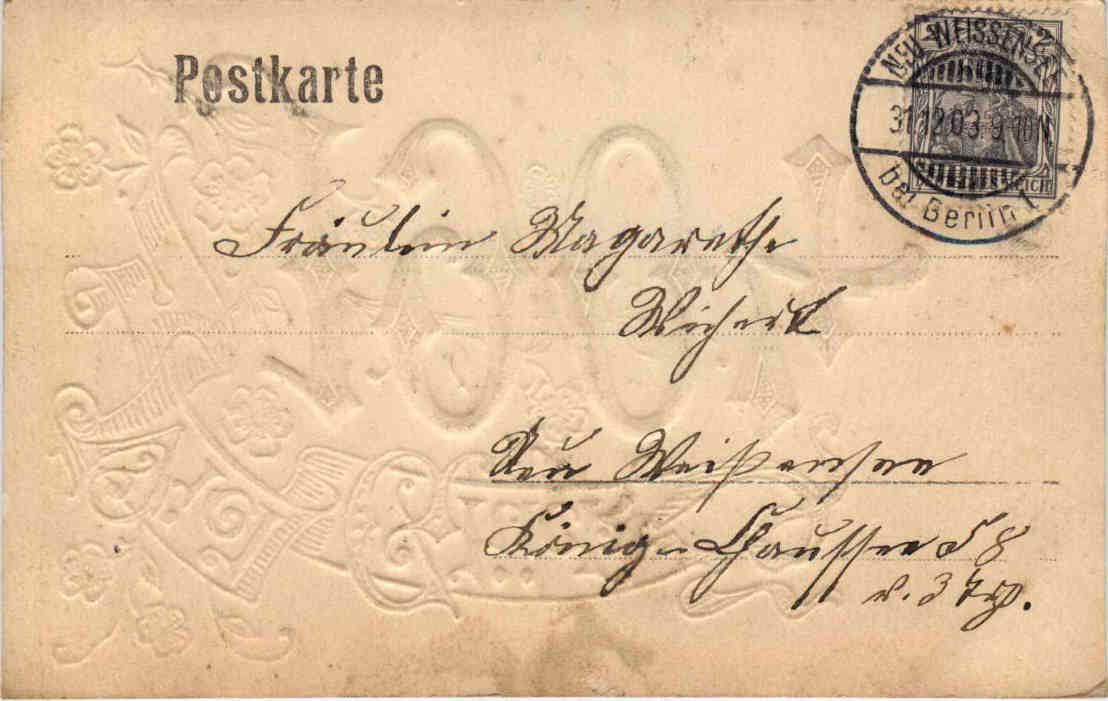 Postkarte
NEU-WEISSENSEE
31.12.03.9-10N
bei Berlin 1
REICH
Fräulein Magarethe
Wichert
Neu Weißensee
König-Chaussee 58
v. 3 Trp.